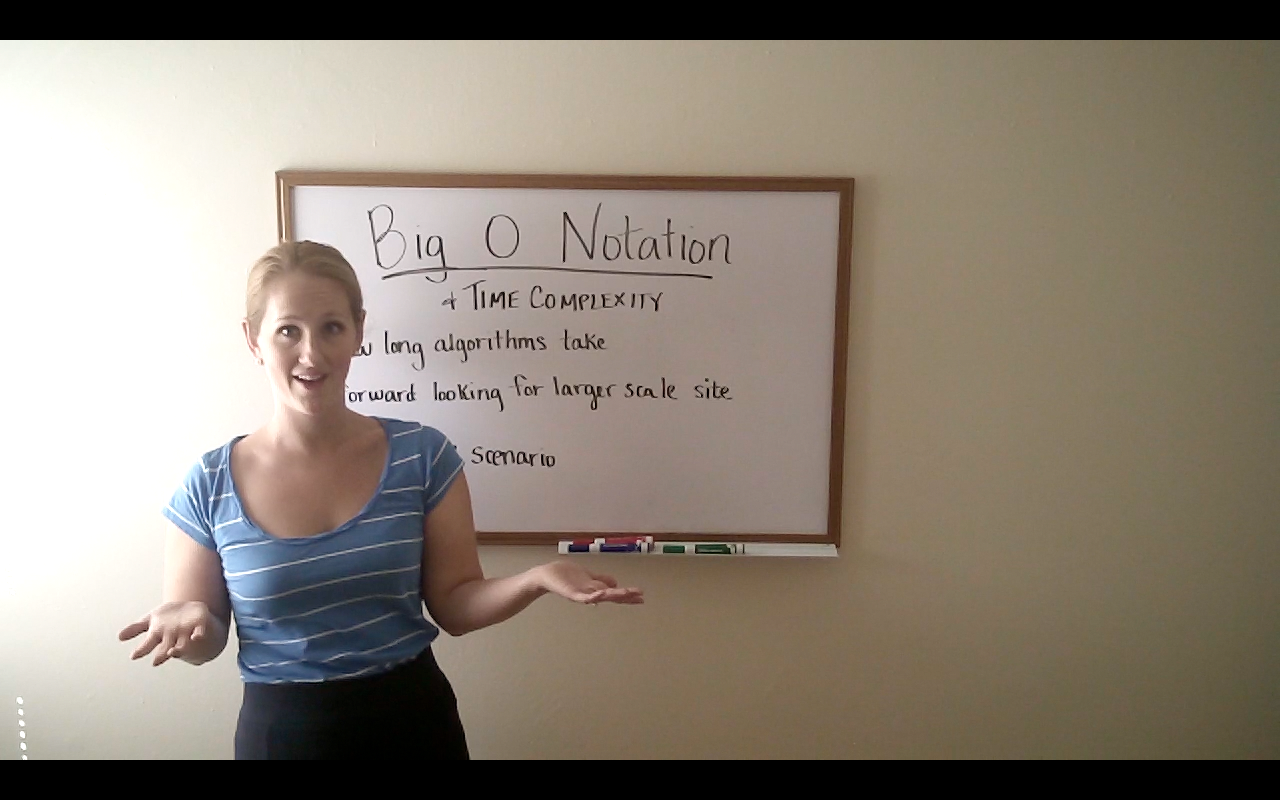 Big O Notation
+ TIME COMPLEXITY
long algorithms take
forward looking for larger scale site
scenario